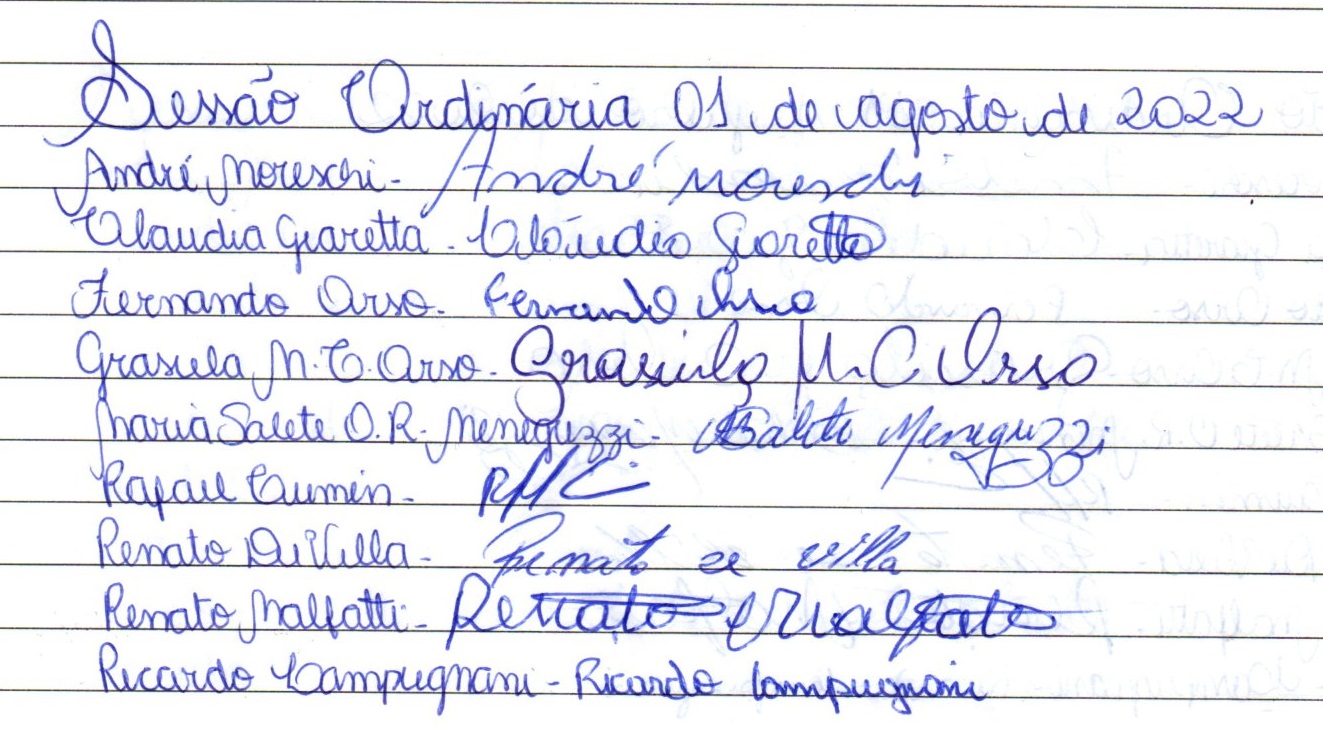 Sessão Ordinária 01 de agosto de 2022
André Moreschi - André Moreschi
Claudia Giaretta - Cláudia Giaretta
Fernando Orso - Fernando Orso
Grasiela M. C. Orso - Grasiela M. C. Orso
Maria Salete O. R. Meneguzzi - Salete Meneguzzi
Rafael Cumin -
Renato De Villa - Renato de Villa
Renato Malfatti - Renato Malfatti
Ricardo Campugnani - Ricardo Campugnani